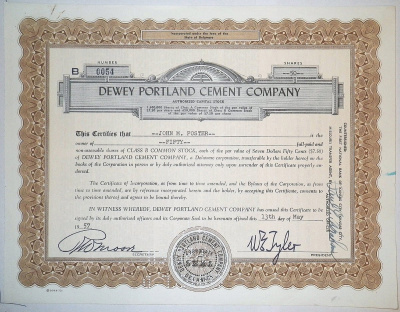 Incorporated under the laws of the
State of Delaware
NUMBER
SHARES
B 0054
50
DEWEY PORTLAND CEMENT COMPANY
AUTHORIZED CAPITAL STOCK
This Certifies that --JOHN M. FOSTER-- is the
owner of --FIFTY-- full-paid and
non-assessable shares of CLASS B COMMON STOCK, each of the par value of Seven Dollars Fifty Cents ($7.50)
of DEWEY PORTLAND CEMENT COMPANY, a Delaware corporation, transferable by the holder hereof on the
books of the Corporation in person or by duly authorized attorney only upon surrender of this Certificate properly
endorsed.
The Certificate of Incorporation, as from time to time amended, and the Bylaws of the Corporation, as from
time to time amended, are by reference incorporated herein and the holder, by accepting this Certificate, assents to
the provisions thereof and agrees to be bound thereby.
IN WITNESS WHEREOF, DEWEY PORTLAND CEMENT COMPANY has caused this Certificate to be
signed by its duly authorized officers and its Corporate Seal to be hereunto affixed this 13th day of May
19 57
W E Tyler
SECRETARY
PRESIDENT
PORTLAND CEMENT COMPANY
CORPORATE
SEAL
DELAWARE
COUNTERSIGNED